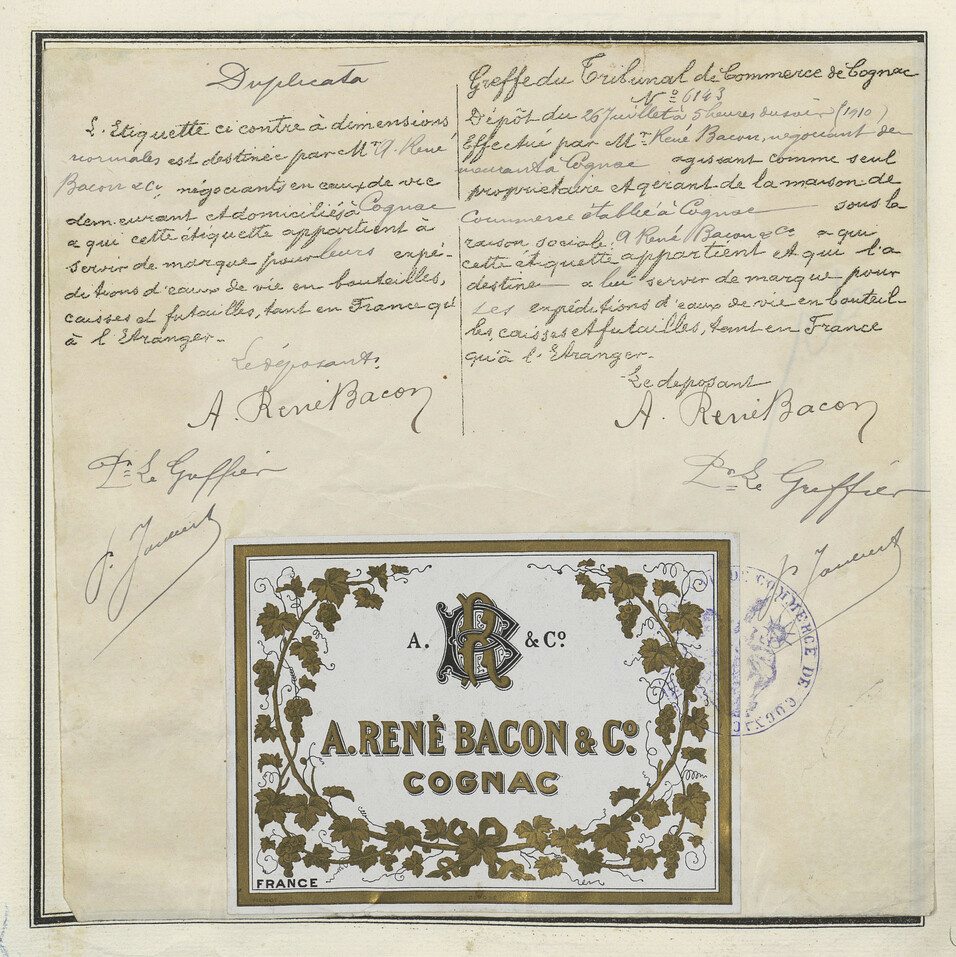 Duplicata
L'Etiquette ci contre à dimensions
normales est destinée par Mr A. René
Bacon & Cº, négociants en eaux de vie
demeurant et domiciliés à Cognac
a qui cette étiquette appartient à
servir de marque pour leurs expé-
ditions d'eaux de vie en bouteilles,
caisses et futailles, tant en France qu'
à l'Etranger.
Le déposant,
A. René Bacon
Pr Le Greffier
Greffe du Tribunal de Commerce de Cognac
Nº 6143
Dépôt du 26 juillet à 5 heures du soir (1910)
Effectué par Mr René Bacon, négociant de
meurant à Cognac agissant comme seul
propriétaire et gérant de la maison de
Commerce établie à Cognac sous la
raison sociale: A René Bacon & Cº a qui
cette étiquette appartient et qui l'a
destine a lui servir de marque pour
les expéditions d'eaux de vie en bouteil-
les, caisses et futailles, tant en France
qu'à l'Etranger.
Le deposant
A. René Bacon
Pr Le Greffier
COMMERCE DE
A. RB & Cº
A. RENÉ BACON & Cº
COGNAC
FRANCE